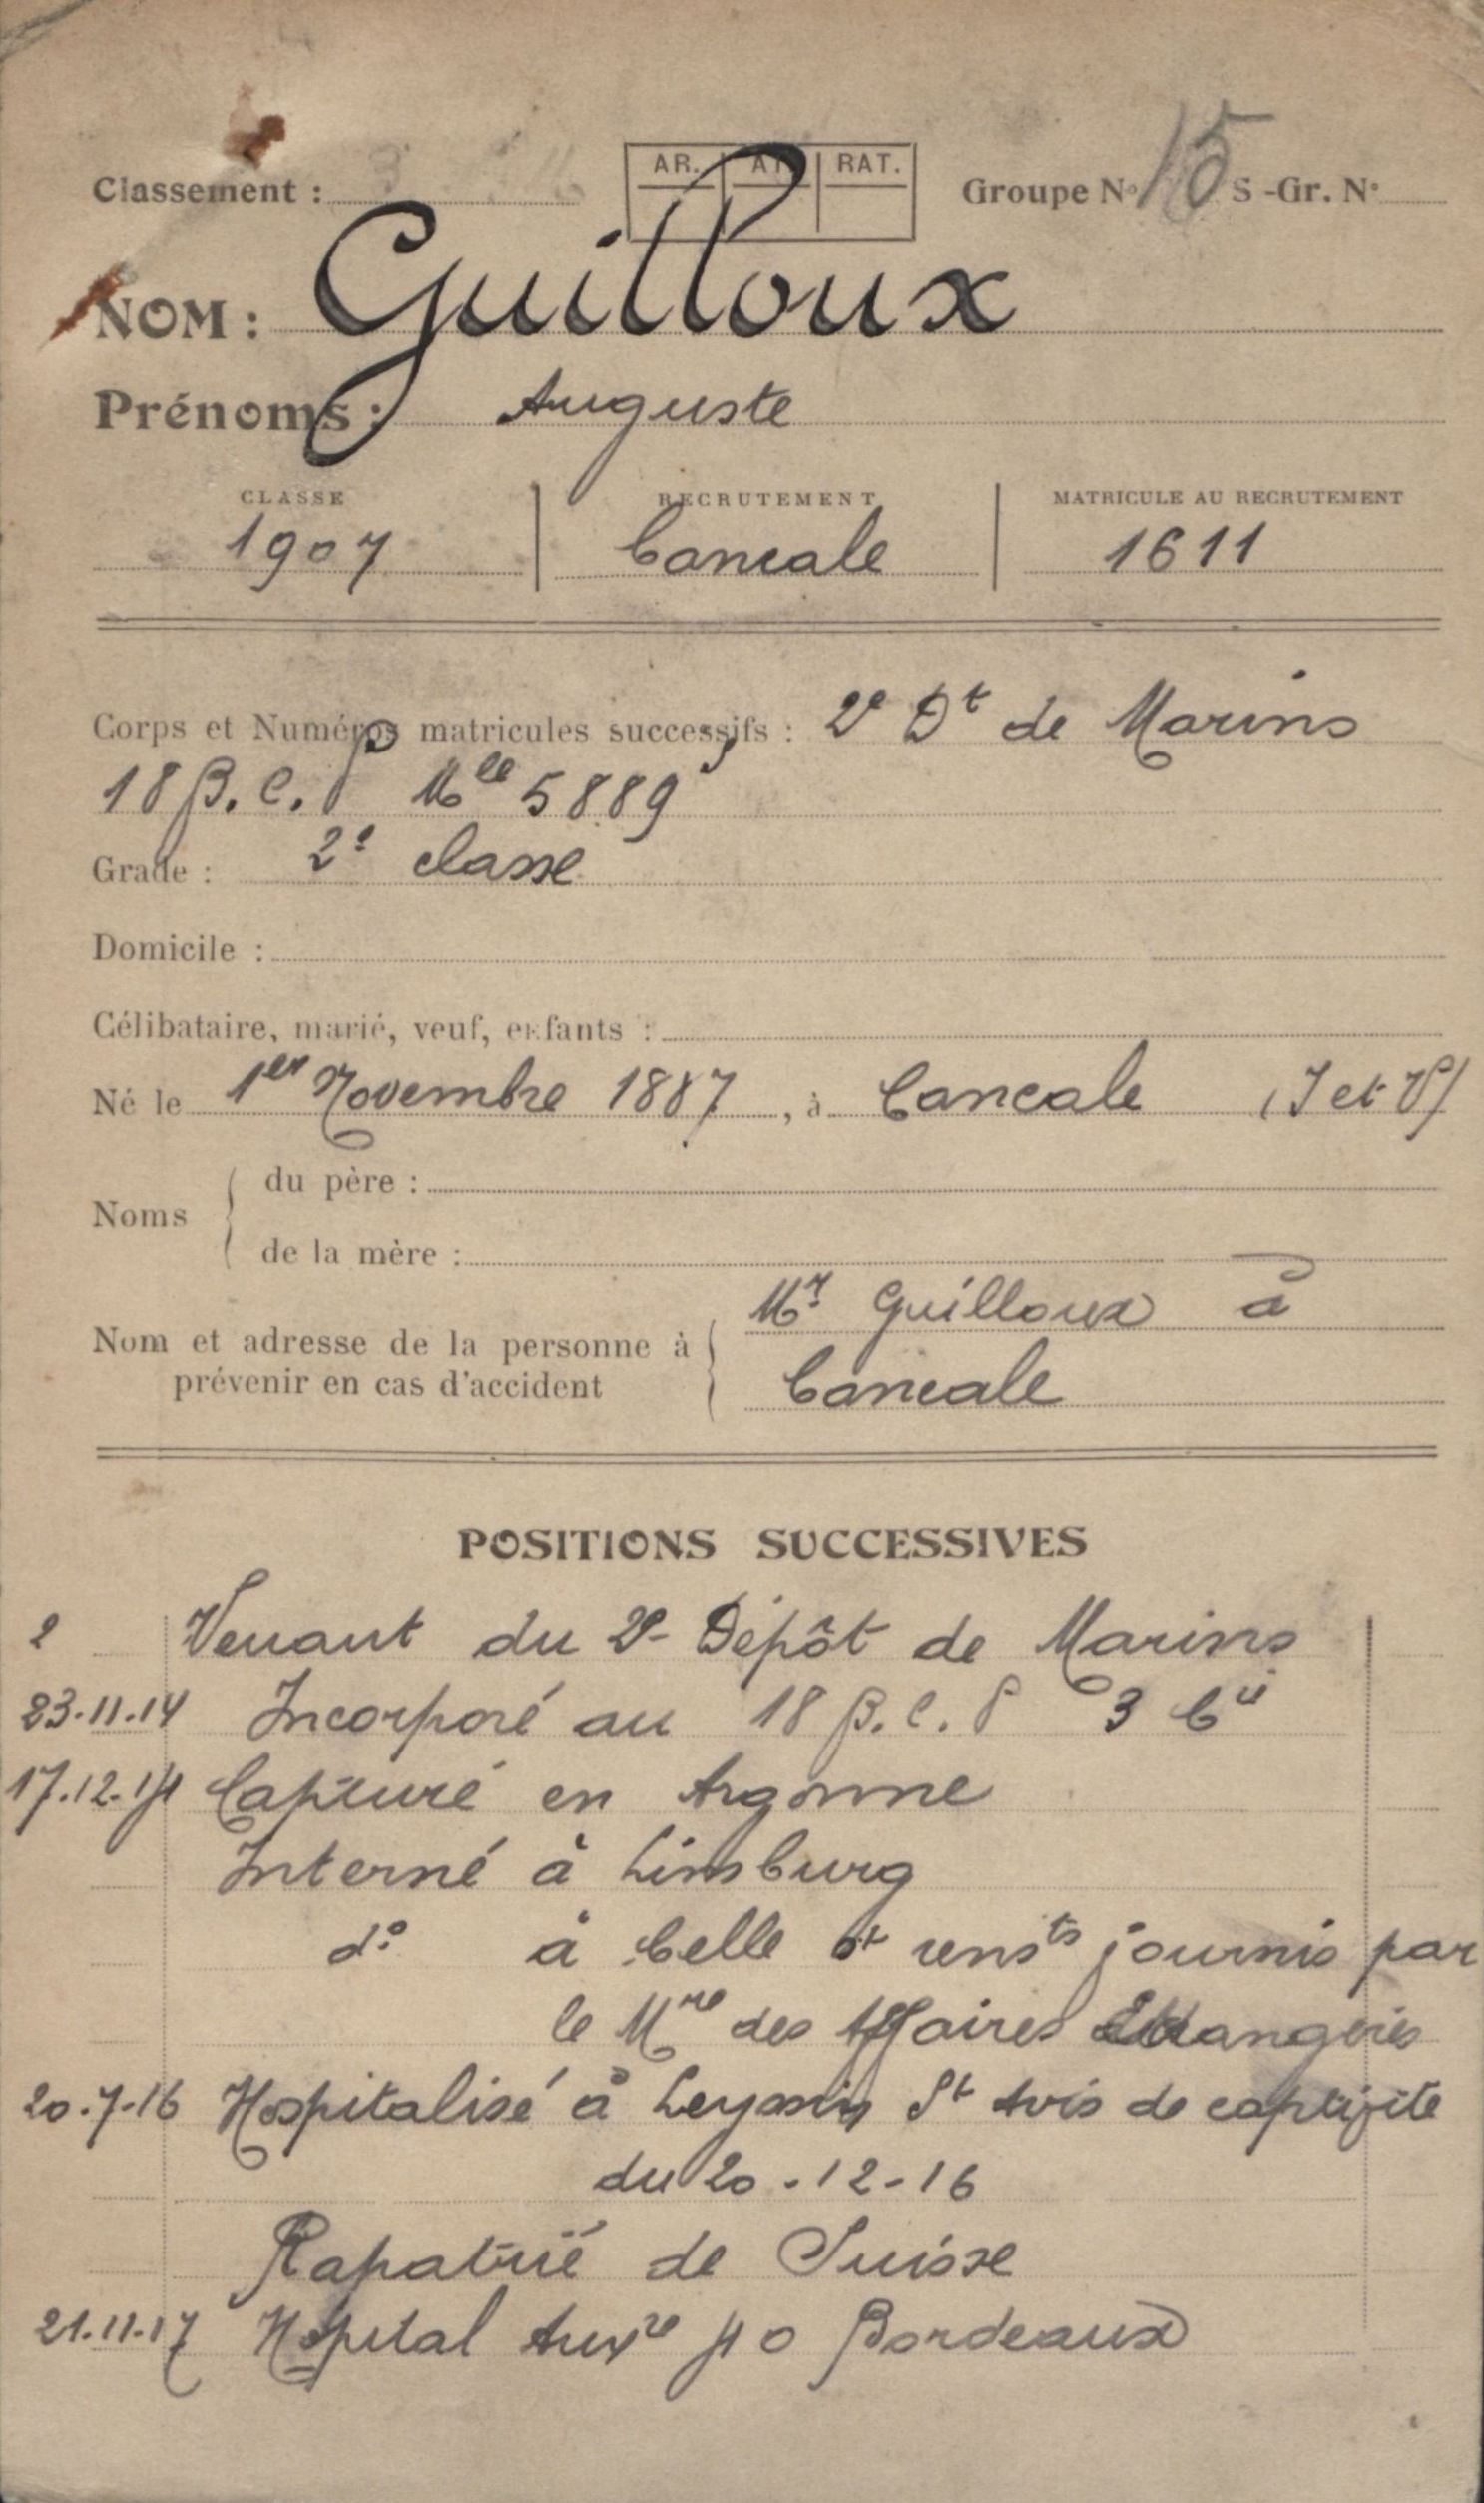 Classement :
AR. AT. RAT.
Groupe N° 15 S-Gr. N°
NOM : Guilloux
Prénoms : Auguste
CLASSE RECRUTEMENT MATRICULE AU RECRUTEMENT
1907 Cancale 1611
Corps et Numéros matricules successifs : 2e Dt de Marins
18 B.C.P Mle 5889
Grade : 2e classe
Domicile :
Célibataire, marié, veuf, enfants :
Né le 1er Novembre 1887, à Cancale (I et V)
Noms
du père :
de la mère :
Nom et adresse de la personne à prévenir en cas d'accident
Mr Guilloux à
Cancale
POSITIONS SUCCESSIVES
2 Venant du 2e Dépôt de Marins
23.11.14 Incorporé au 18 B.C.P 3 Cie
17.12.14 Capturé en Argonne
Interné à Limburg
do à Celle st rensts fournis par
le Mre des Affaires Etrangères
20.7.16 Hospitalisé à Leyssin St Avis de captivité
du 20-12-16
Rapatrié de Suisse
21.11.17 Hôpital Auxre 40 Bordeaux